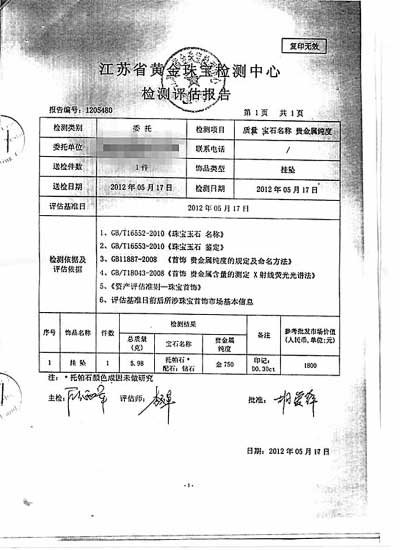 复印无效
江苏省黄金珠宝检测中心
检测评估报告
报告编号：1205480 第 1 页 共 1 页
检测类别 委托 检测项目 质量 宝石名称 贵金属纯度
委托单位 联系电话 /
送检件数 1件 饰品类型 挂坠
送检日期 2012 年 05 月 17日 检测日期 2012 年 05 月 17 日
评估基准日 2012 年 05 月 17 日
检测依据及评估依据
1、GB/T16552-2010《珠宝玉石 名称》
2、GB/T16553-2010《珠宝玉石 鉴定》
3、GB11887-2008 《首饰 贵金属纯度的规定及命名方法》
4、GB/T18043-2008《首饰 贵金属含量的测定 X 射线荧光光谱法》
5、《资产评估准则—珠宝首饰》
6、评估基准日前后所涉珠宝首饰市场基本信息
序号 饰品名称 件数 检测结果 备注 参考批发市场价值（人民币，单位:元）
总质量（克） 宝石名称 贵金属纯度
1 挂坠 1 5.98 托帕石* 配石：钻石 金 750 印记：D0.30ct 1800
注：*托帕石颜色成因未做研究
主检： 评估师： 批准：
日期：2012 年 05 月 17 日
-1-